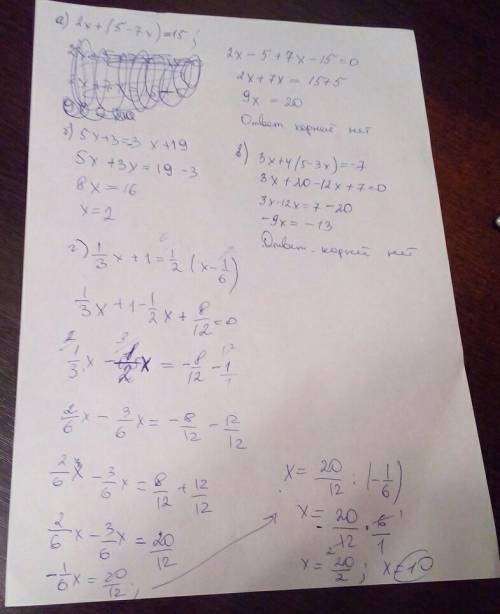 а) 2x + (5 - 7x) = 15;
2x - 5 + 7x - 15 = 0
2x + 7x = 15 + 5
9x = 20
Ответ корней нет
б) 5x + 3 = 3x + 19
5x + 3x = 19 - 3
8x = 16
x = 2
в) 3x + 4(5 - 3x) = -7
3x + 20 - 12x + 7 = 0
3x - 12x = 7 - 20
-9x = -13
Ответ - корней нет
г) 1/3 x + 1 = 1/2 (x - 1/6)
1/3 x + 1 - 1/2 x + 8/12 = 0
1/3 x - 1/2 x = -8/12 - 1
2/6 x - 3/6 x = -8/12 - 12/12
2/6 x - 3/6 x = 8/12 + 12/12
2/6 x - 3/6 x = 20/12
-1/6 x = 20/12;
x = 20/12 : (-1/6)
x = -20/12 · 6/1
x = 20/2; x = 10